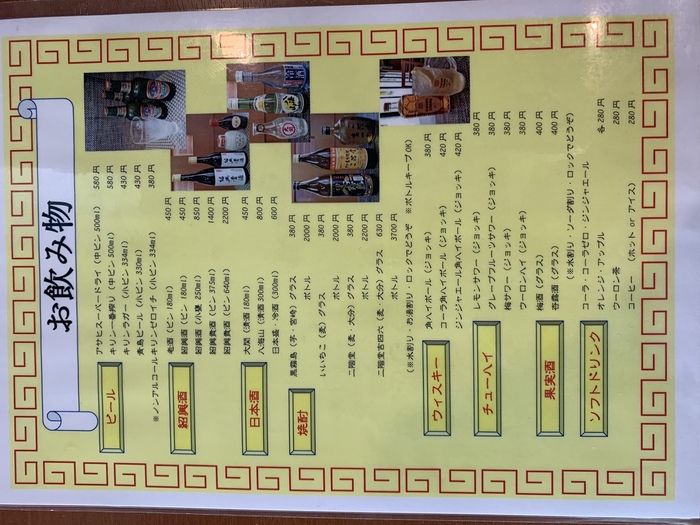 お飲み物
ビール
アサヒスーパードライ（中ビン 500ml） 580 円
キリン一番搾り（中ビン 500ml） 580 円
キリンラガー（小ビン 334ml） 430 円
青島ビール（小ビン 330ml） 430 円
※ノンアルコールキリンゼロイチ（小ビン 334ml） 380 円
紹興酒
老酒（ビン 180ml） 450 円
紹興酒（ビン 180ml） 450 円
紹興酒（小甕 250ml） 850 円
紹興貴酒（ビン 375ml） 1400 円
紹興貴酒（ビン 640ml） 2200 円
日本酒
大関（清酒 180ml） 450 円
八海山（清酒 300ml） 800 円
日本盛・冷酒（300ml） 600 円
焼酎
黒霧島（芋・宮崎）グラス 380 円
ボトル 2000 円
いいちこ（麦）グラス 380 円
ボトル 2000 円
二階堂（麦・大分）グラス 380 円
ボトル 2200 円
二階堂吉四六（麦・大分）グラス 630 円
ボトル 3700 円
（※水割り・お湯割り・ロックでどうぞ ※ボトルキープ OK）
ウィスキー
角ハイボール（ジョッキ） 380 円
コーラ角ハイボール（ジョッキ） 420 円
ジンジャエール角ハイボール（ジョッキ） 420 円
チューハイ
レモンサワー（ジョッキ） 380 円
グレープフルーツサワー（ジョッキ） 380 円
梅サワー（ジョッキ） 380 円
ウーロンハイ（ジョッキ） 380 円
果実酒
梅酒（グラス） 400 円
杏露酒（グラス） 400 円
（※水割り・ソーダ割り・ロックでどうぞ）
ソフトドリンク
コーラ・コーラゼロ・ジンジャエール
オレンジ・アップル 各 280 円
ウーロン茶 280 円
コーヒー （ホット or アイス） 280 円